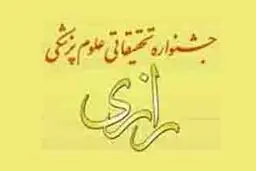 جشنواره تحقیقاتی علوم پزشکی
رازی